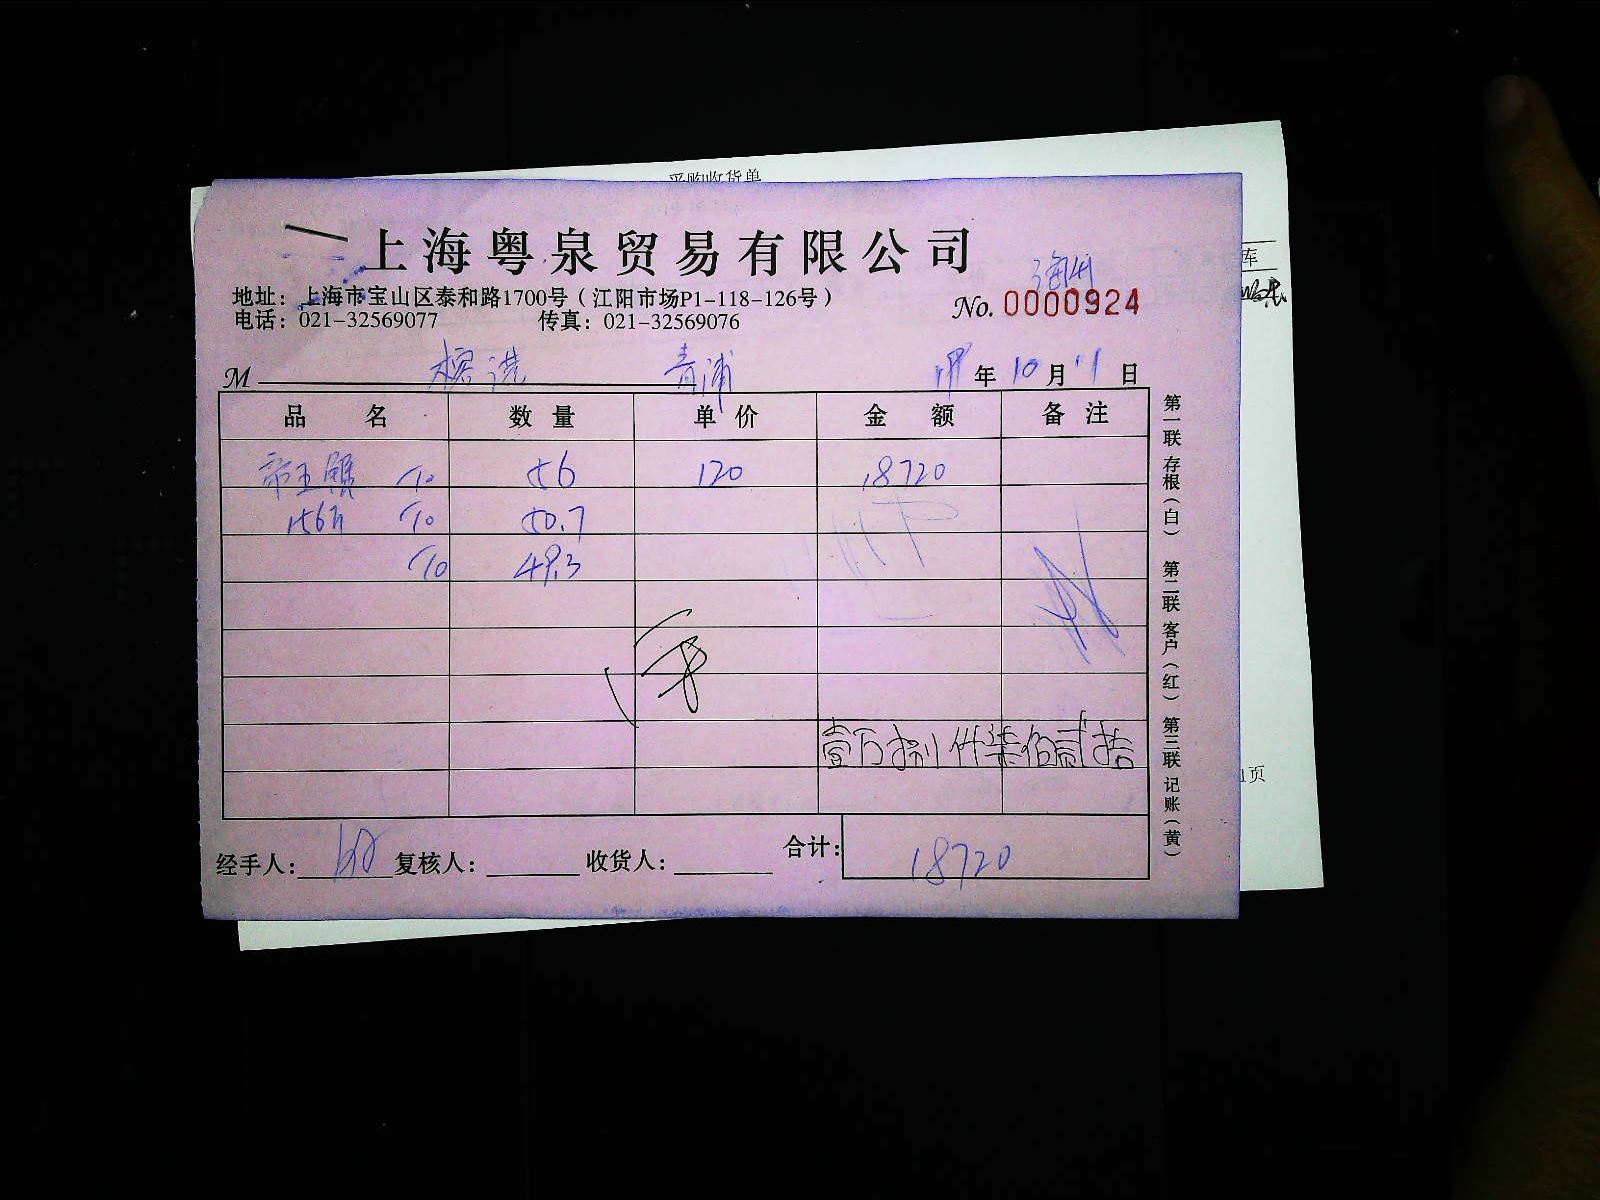 采购收货单
上海粤泉贸易有限公司
地址：上海市宝山区泰和路1700号（江阳市场P1-118-126号）
No. 0000924
电话：021-32569077 传真：021-32569076
M 青浦 年 10 月 11 日
品名 数量 单价 金额 备注
56 120 18720
156斤 50.7
49.3
壹万捌仟柒佰贰拾
经手人： 复核人： 收货人： 合计： 18720
第一联存根（白） 第二联客户（红） 第三联记账（黄）
库
页